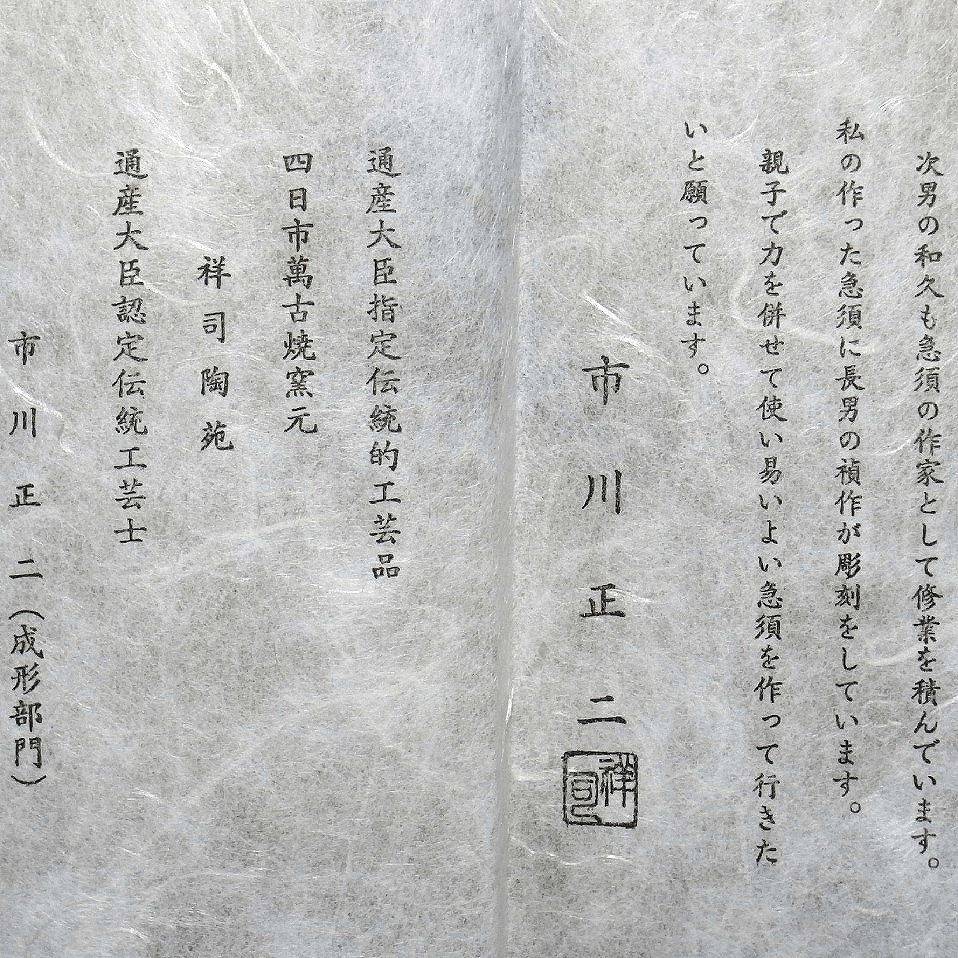 次男の和久も急須の作家として修業を積んでいます。
私の作った急須に長男の禎作が彫刻をしています。
親子で力を併せて使い易いよい急須を作って行きた
いと願っています。
市川正二
祥司
通産大臣指定伝統的工芸品
四日市萬古焼窯元
祥司陶苑
通産大臣認定伝統工芸士
市川正二(成形部門)